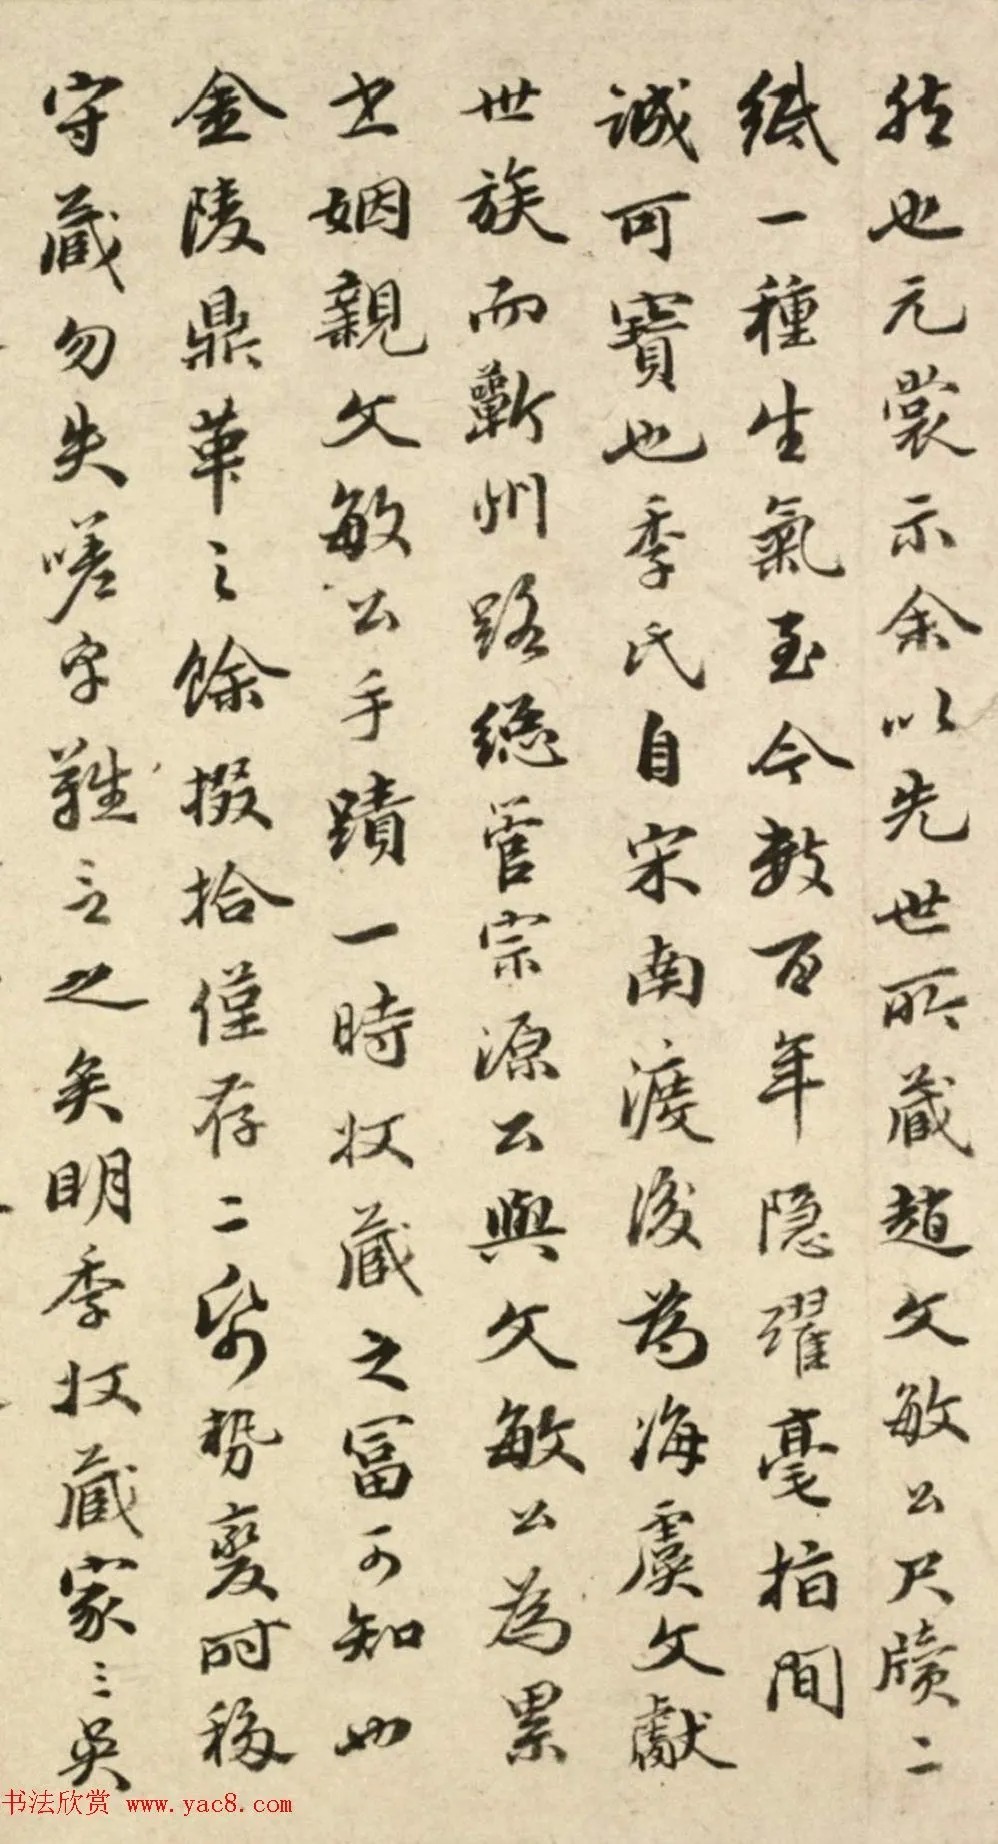 然也元裳示余以先世所藏趙文敏公尺牘二
紙一種生氣至今數百年隐耀毫指間
誠可寶也季氏自宋南渡後為海虞文獻
世族而蘄州路緫管宗源公與文敏公為累
世姻親文敏公手蹟一時收藏之冨可知也
金陵鼎革之餘掇拾僅存二紙勢變时移
守藏勿失嗟乎難言之矣明季收藏家三吳
书法欣赏 www.yac8.com